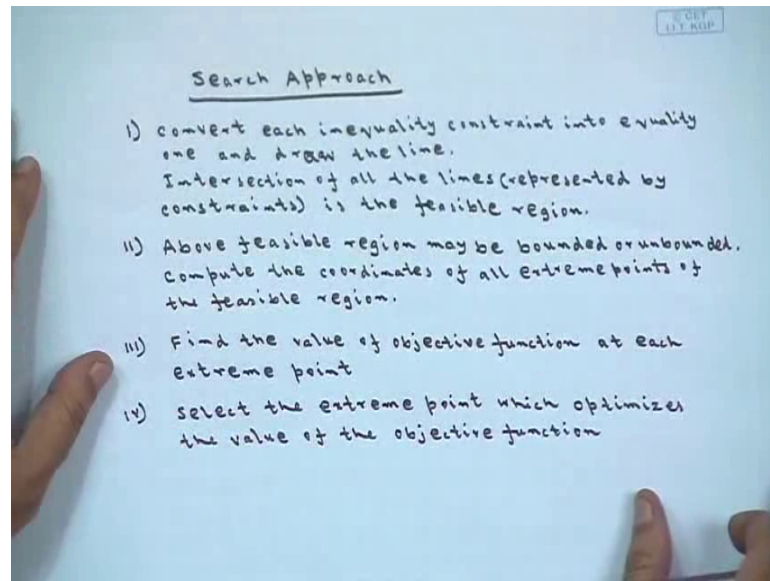 © CET
I.I.T. KGP
Search Approach
I) Convert each inequality constraint into equality
one and draw the line.
Intersection of all the lines (represented by
constraints) is the feasible region.
II) Above feasible region may be bounded or unbounded.
Compute the coordinates of all extreme points of
the feasible region.
III) Find the value of objective function at each
extreme point
IV) Select the extreme point which optimizes
the value of the objective function